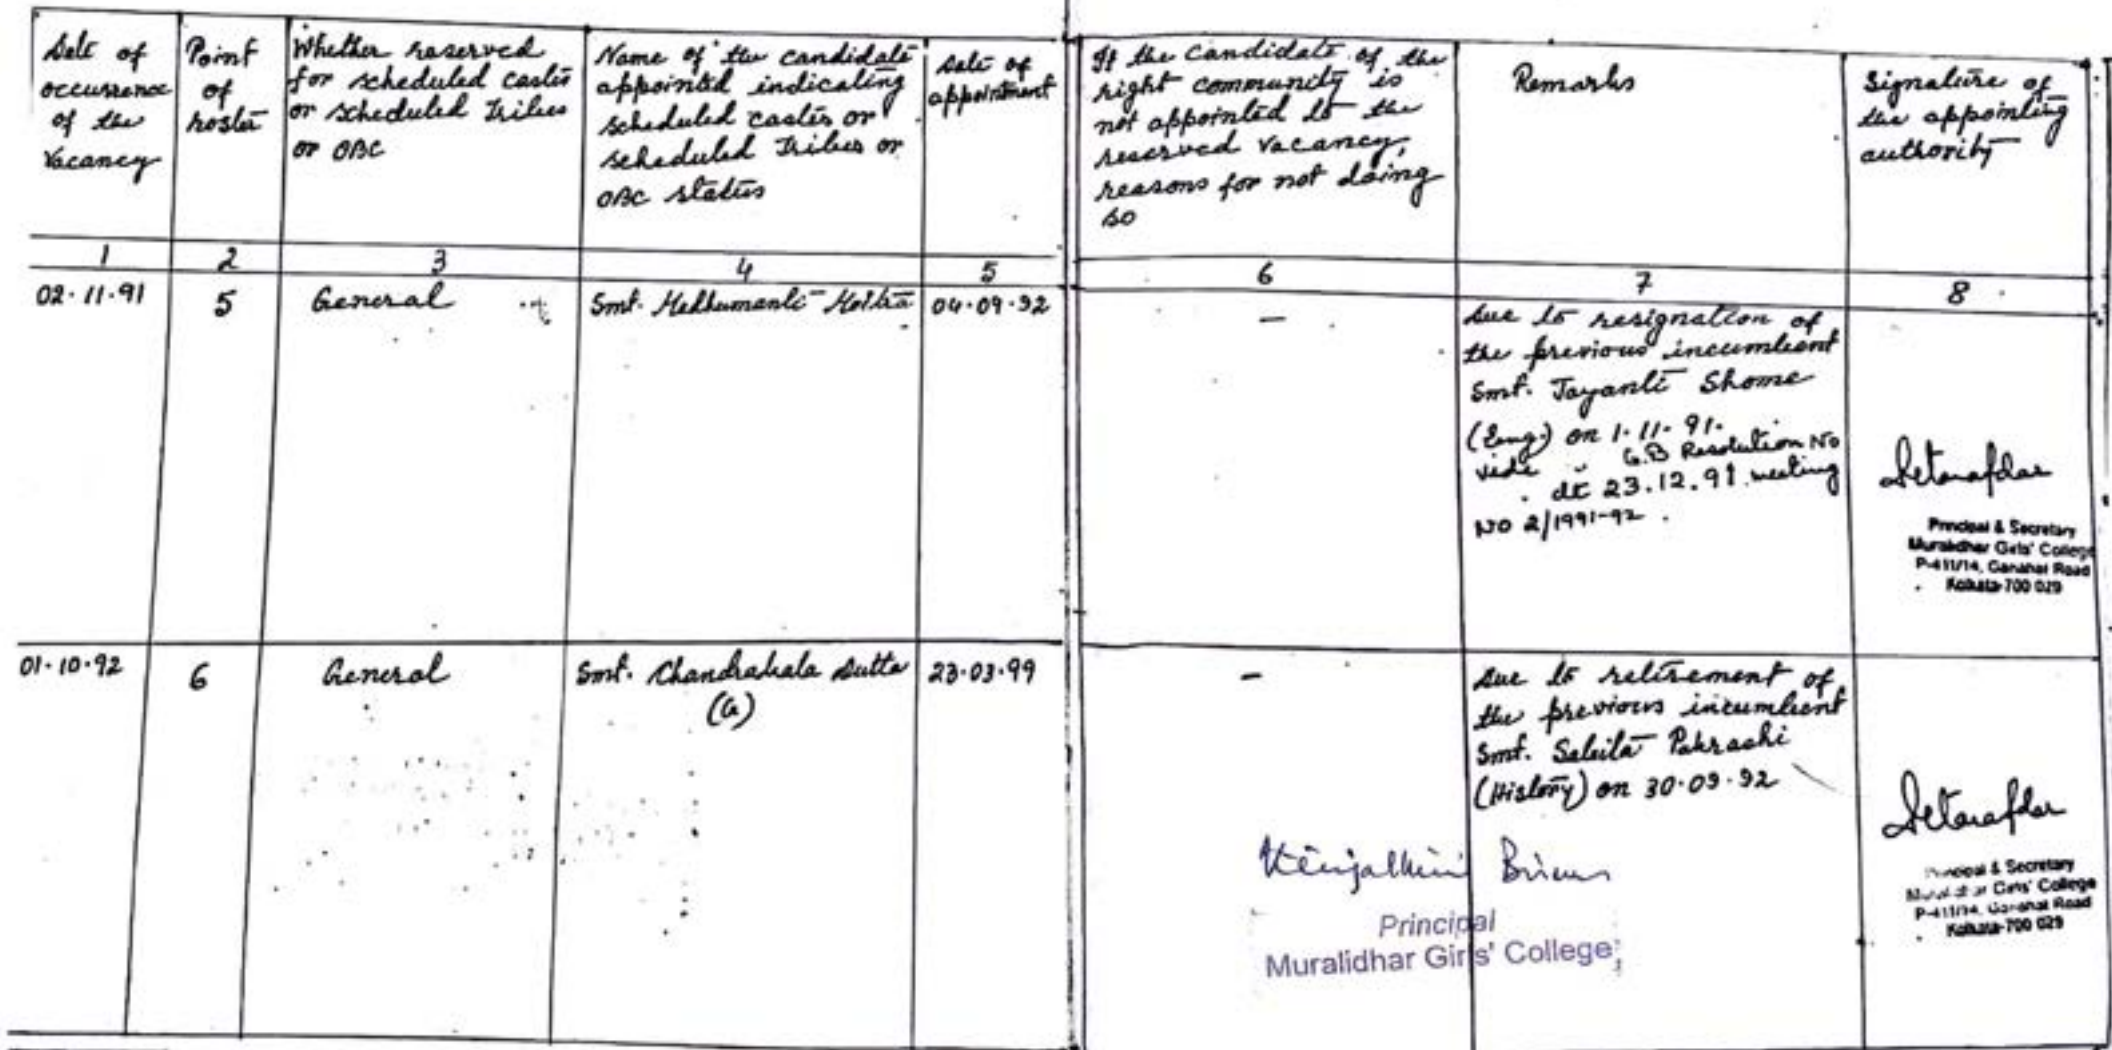 Date of
occurrence
of the
Vacancy
Point
of
roster
Whether reserved
for scheduled castes
or scheduled Tribes
or OBC
Name of the candidate
appointed indicating
scheduled castes or
scheduled Tribes or
OBC status
Date of
appointment
If the candidate of the
right community is
not appointed to the
reserved vacancy,
reasons for not doing
so
Remarks
Signature of
the appointing
authority
1 2 3 4 5 6 7 8
02.11.91
5
General
Smt. Madhumanti Moitra
04.09.92
-
Due to resignation of
the previous incumbent
Smt. Jayanti Shome
(Eng.) on 1.11.91.
vide G.B Resolution No
dt 23.12.91 meeting
NO 2/1991-92.
Principal & Secretary
Muralidhar Girls' College
P-411/14, Gariahat Road
Kolkata-700 029
01.10.92
6
General
Smt. Chandrakala Dutta
(G)
23.03.99
-
Due to retirement of
the previous incumbent
Smt. Pakrashi
(History) on 30.09.92
Principal
Muralidhar Girls' College
Principal & Secretary
Muralidhar Girls' College
P-411/14, Gariahat Road
Kolkata-700 029